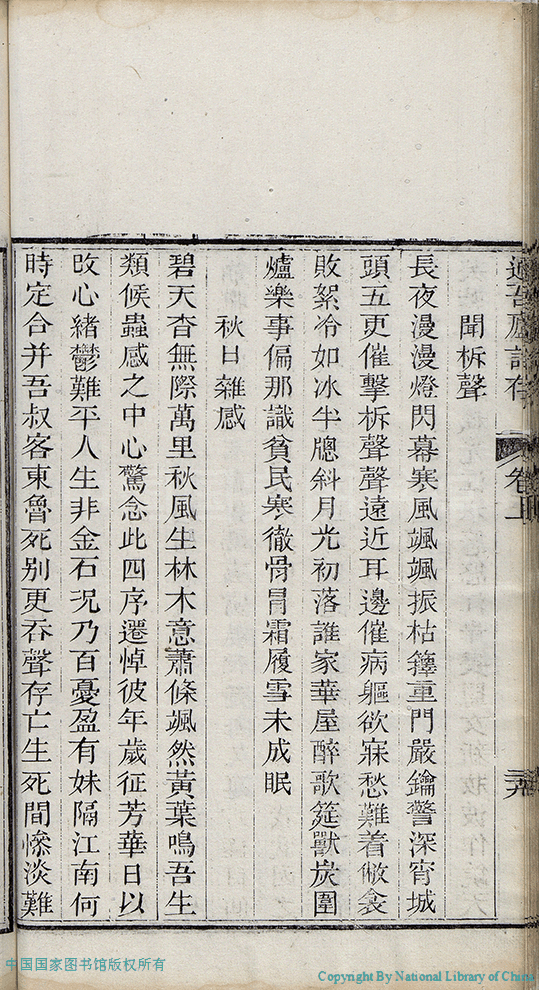 聞柝聲
長夜漫漫燈閃幕寒風颯颯振枯籜重門嚴鑰警深宵城
頭五更催擊柝聲聲遠近耳邊催病軀欲寐愁難着敝衾
敗絮冷如冰半牕斜月光初落誰家華屋醉歌筵獸炭圍
爐樂事偏那識貧民寒徹骨冒霜履雪未成眠
秋日雜感
碧天杳無際萬里秋風生林木意蕭條颯然黃葉鳴吾生
類候蟲感之中心驚念此四序遷悼彼年歲征芳華日以
改心緒鬱難平人生非金石況乃百憂盈有妹隔江南何
時定合并吾叔客東魯死別更吞聲存亡生死間慘淡難
卷上
中国国家图书馆版权所有
Copyright By National Library of China